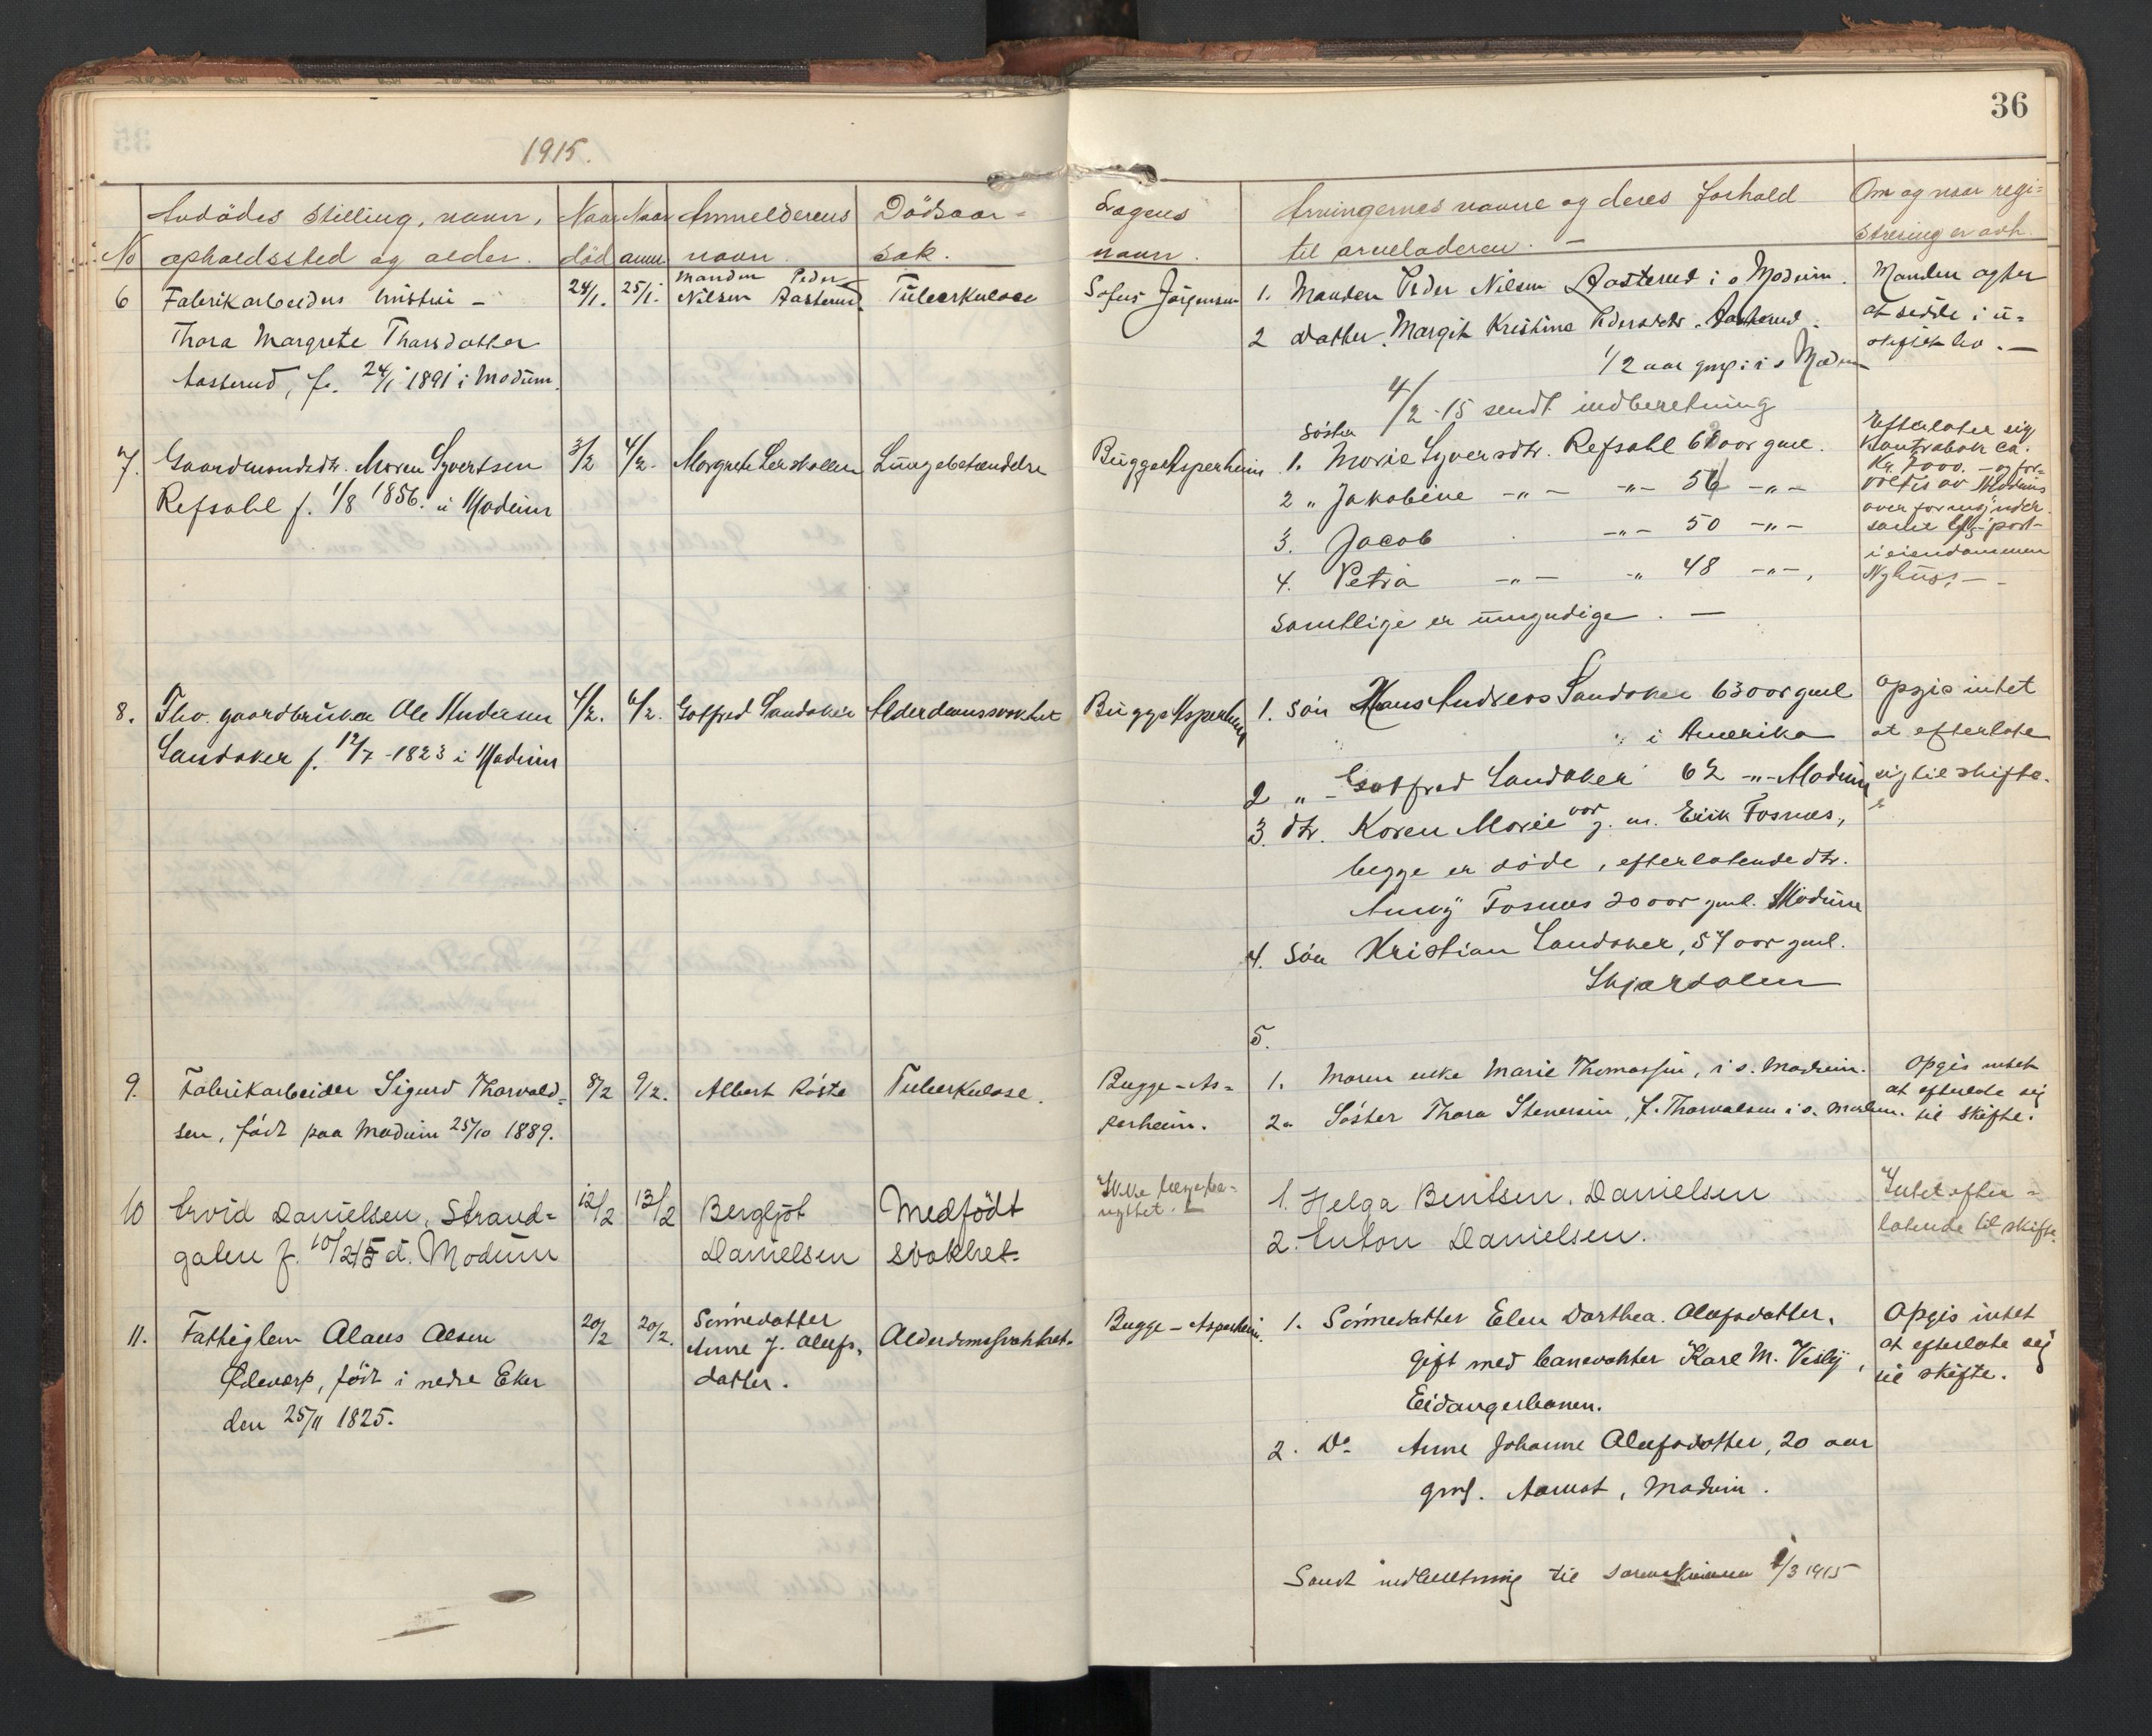 36
1915.
No
Avdödes stilling, navn,
opholdssted og alder.
Naar
död
Naar
anm.
Anmelderens
navn.
Dödsaar-
sak.
Lægens
navn.
Arvingernes navne og deres forhold
til arveladeren. -
Om og naar regi-
strering er avh.
6
Fabrikarbeiders hustru -
Thora Margrete Thorsdatter
Aasterud, f. 24/1 1891 i Modum.
24/1.
25/1.
Manden Peder
Nilsen Aasterud.
Tuberkulose
Sofus Jörgensen
1. Manden Peder Nilsen Aasterud i s Modum.
2 Datter. Margit Kristine Pedersdtr. Aasterud.
1/2 aar gml: i s Modum
Manden agter
at sidde i u-
skiftet bo. -
4/2-15 sendt indberetning
7.
Gaardmandsdtr. Maren Syvertsen
Refsahl f. 1/8 1856. i Modum
3/2
4/2.
Margrete Lerskallen
Lungebetændelse
Bugge Asperheim
Söster
1. Marie Syversdtr. Refsahl 61 aar gml.
2 " Jakobine -"- -"- 56 -"-
3. Jacob -"- 50 -"-
4. Petra -"- " 48 -"-,
samtlige er umyndige. -
Efterlater sig
Bankbok ca.
Kr. 7000. - og for-
valtes av Modums
overformynderi
samt
i eiendommen
Nyhus. -
8.
Fhv. gaardbruker Ole Andersen
Sandaker f. 12/7-1823 i Modum
4/2.
6/2.
Gotfred Sandaker
Alderdomssvakhet
Bugge Asperheim
1. Sön Hans Andreas Sandaker 63 aar gml
i Amerika
2 " - Gotfred Sandaker 62 -"- Modum
3. dtr. Karen Marie var g. m. Erik Fosnæs,
begge er döde, efterlatende dtr.
Anny Fosnæs 20 aar gml. Modum
4. Sön Kristian Sandaker, 57 aar gml.
Skjærdalen
5.
Opgis intet
at efterlate
sig til skifte.
9.
Fabrikarbeider Sigurd Thorvald-
sen, födt paa Modum 25/10 1889.
8/2
9/2.
Albert Röste
Tuberkulose.
Bugge-As-
perheim.
1. Moren enke Marie Thomassen, i s. Modum.
2. Söster Thora Stenersen, f. Thorvalsen i s. Modum.
Opgis intet
at efterlate sig
til skifte.
10
Arvid Danielsen, Strand-
gaten f. 10/2 15 d. Modum
12/2
13/2
Bergljot
Danielsen
Medfödt
svakhet-
Ikke læge be-
nyttet. -
1. Helga Bentsen. Danielsen
2. Anton Danielsen.
Intet efter-
latende til skifte.
11.
Fattiglem Olaus Olsen
Ødevarp, födt i nedre Eker
den 25/11 1825.
20/2
20/2.
Sönnedatter
Anne J. Olafs.
datter.
Alderdomssvakhet.
Bugge-Asperheim.
1. Sönnedatter Elen Dorthea. Olafsdatter.
Gift med banevokter Karl M. Vesly,
Eidangerbanen.
2. Do. Anne Johanne Olafsdatter, 20 aar
gml. Aamot, Modum.
Opgis intet
at efterlate sig
til skifte.
Sendt indberetning til sorenskriveren 1/3 1915